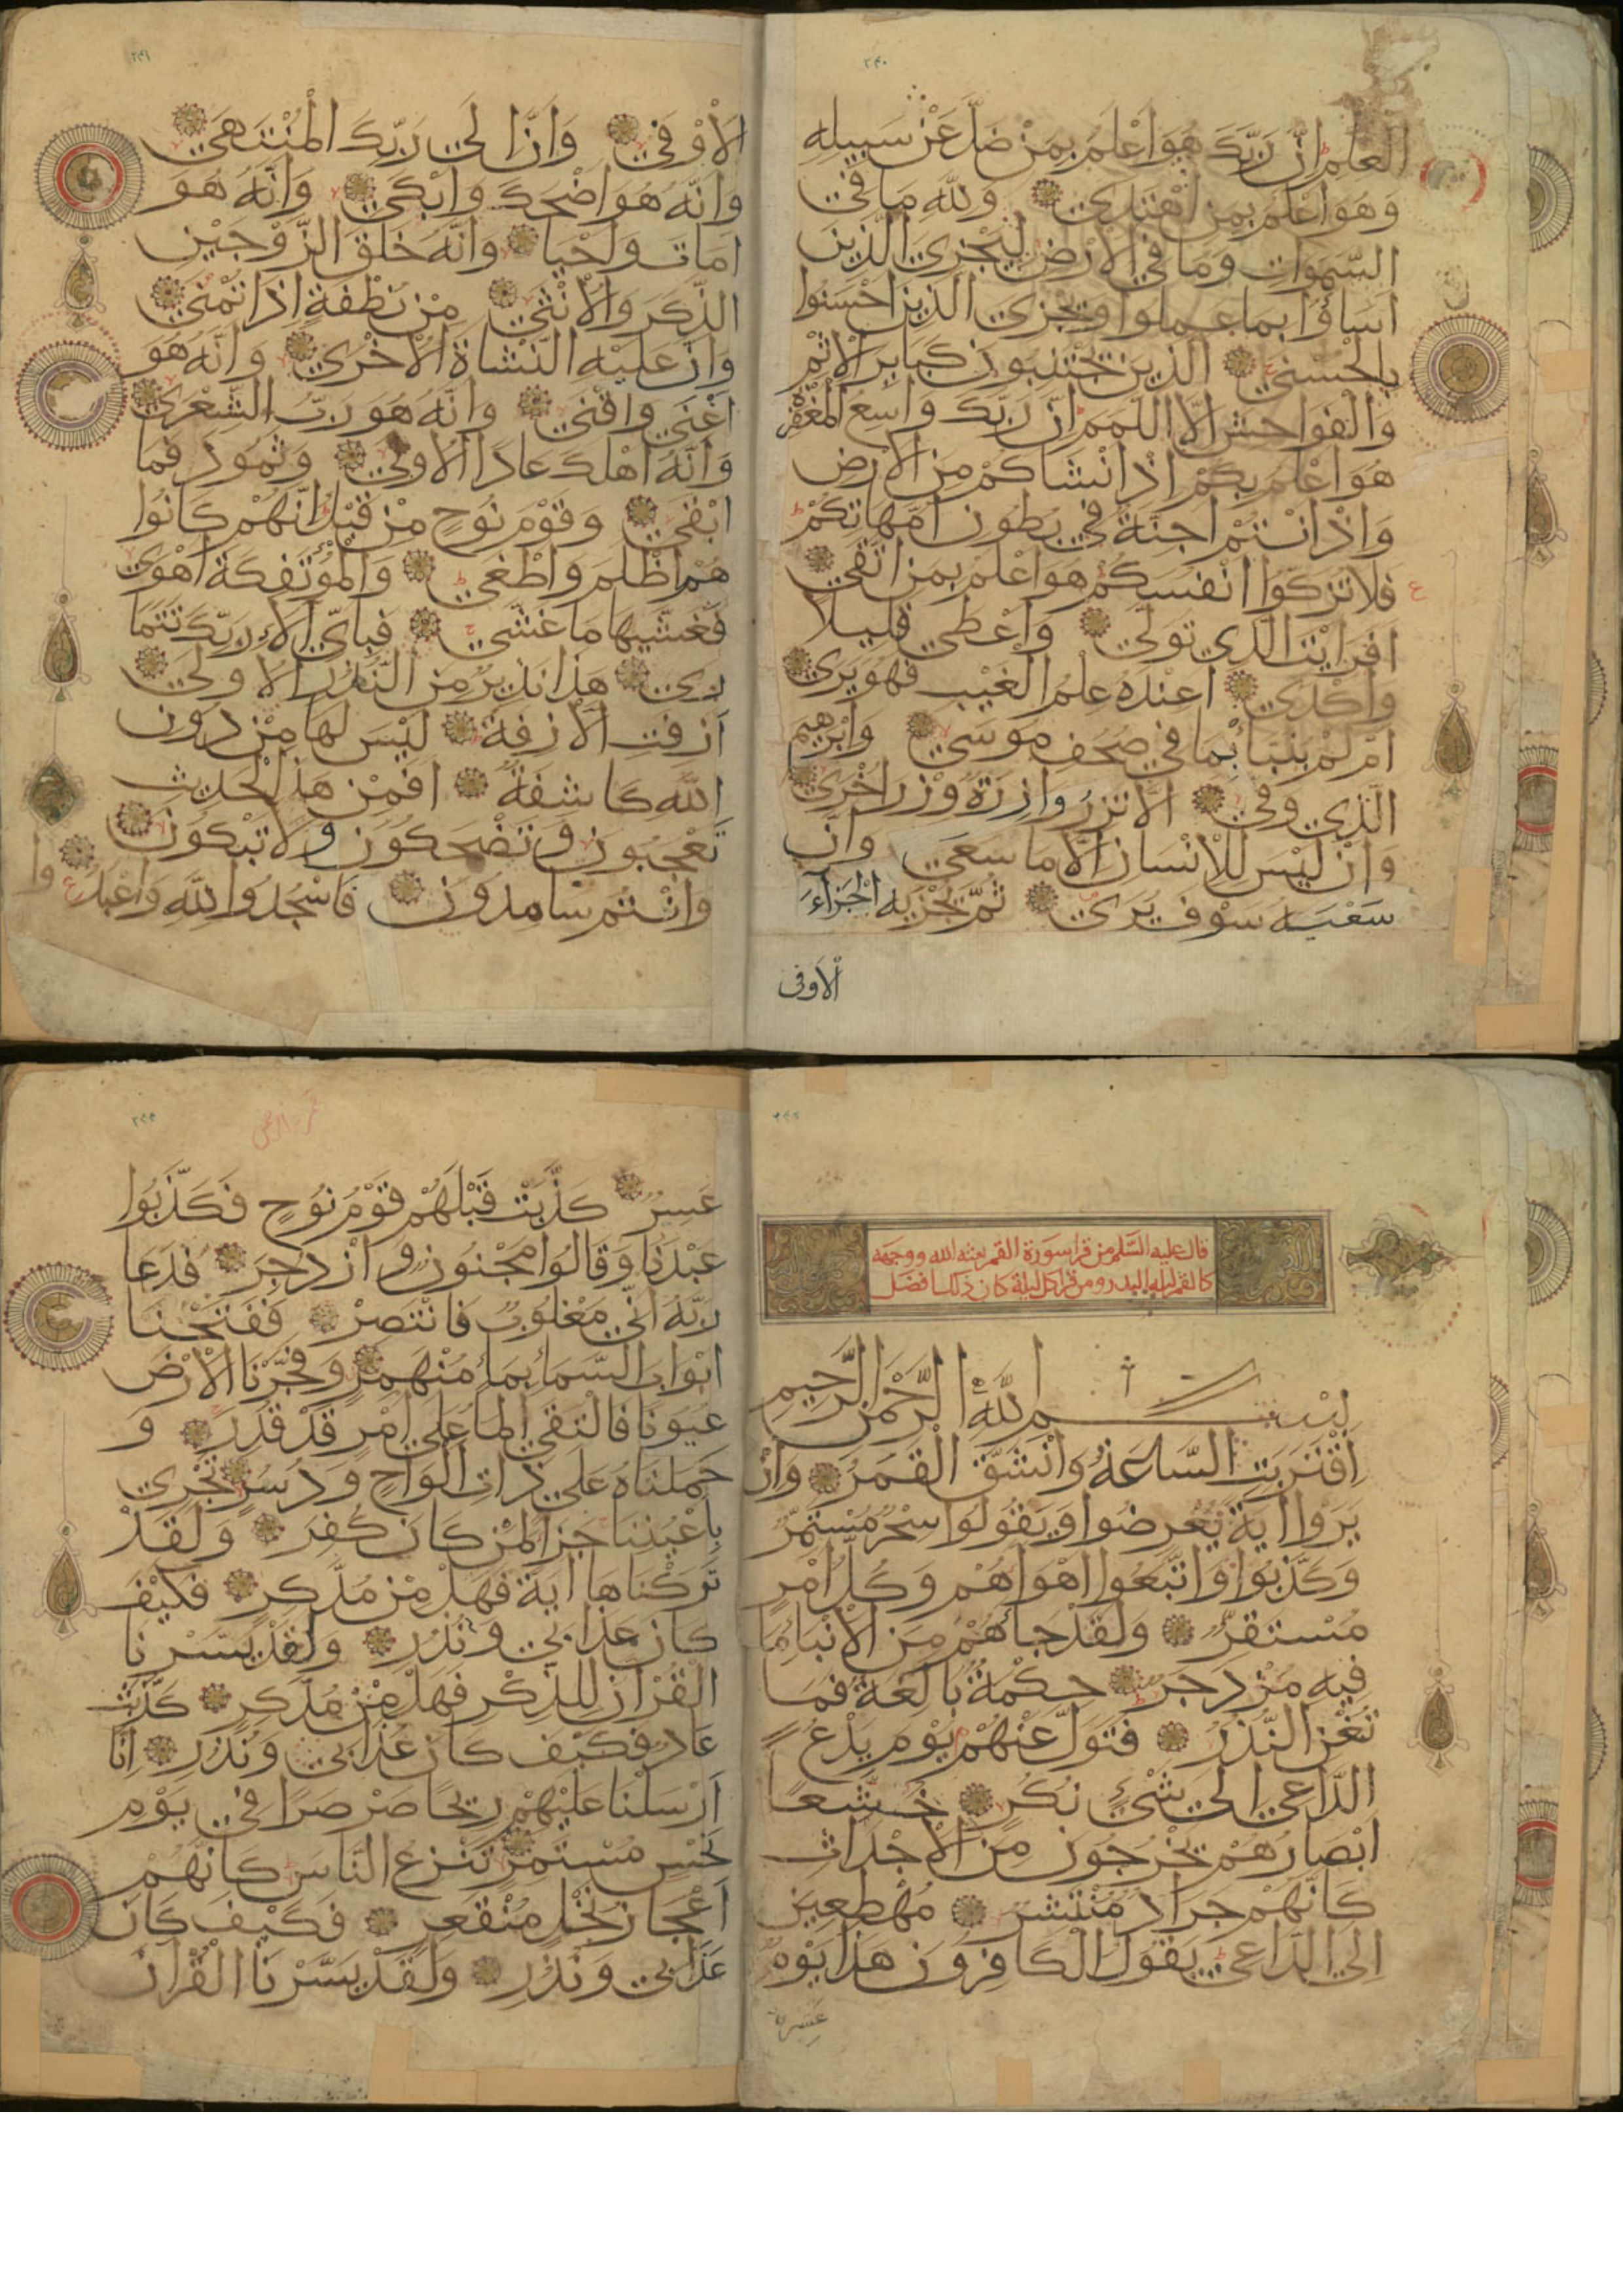 ٢٤٠
العلم ان ربك هو اعلم بمن ضل عن سبيله
وهو اعلم بمن اهتدى ولله ما في
السموات وما في الارض ليجزي الذين
اساؤا بما عملوا ويجزي الذين احسنوا
بالحسنى الذين يجتنبون كباير الاثم
والفواحش الا اللمم ان ربك واسع المغفرة
هو اعلم بكم اذ انشاكم من الارض
واذ انتم اجنة في بطون امهاتكم
فلا تزكوا انفسكم هو اعلم بمن اتقى
افرايت الذي تولى واعطى قليلا
واكدى اعنده علم الغيب فهو يرى
ام لم ينبا بما في صحف موسى وابرهيم
الذي وفى الا تزر وازرة وزر اخرى
وان ليس للانسان الا ما سعى وان
سعيه سوف يرى ثم يجزيه الجزاء
الاوفى
٢٤١
الاوفى وان الى ربك المنتهى
وانه هو اضحك وابكى وانه هو
امات واحيا وانه خلق الزوجين
الذكر والانثى من نطفة اذا تمنى
وان عليه النشاة الاخرى وانه هو
اغنى واقنى وانه هو رب الشعرى
وانه اهلك عادا الاولى وثمود فما
ابقى وقوم نوح من قبل انهم كانوا
هم اظلم واطغى والمؤتفكة اهوى
فغشيها ما غشى فباي الاء ربك تتما
رى هذا نذير من النذر الاولى
ازفت الازفة ليس لها من دون
الله كاشفة افمن هذا الحديث
تعجبون وتضحكون ولا تبكون
وانتم سامدون فاسجدوا لله واعبدوا
قال عليه السلم من قرا سورة القمر بعثه الله ووجهه
كالقمر ليلة البدر ومن قرا كل ليلة كان ذلك افضل
بسم الله الرحمن الرحيم
اقتربت الساعة وانشق القمر وان
يروا اية يعرضوا ويقولوا سحر مستمر
وكذبوا واتبعوا اهواهم وكل امر
مستقر ولقد جاهم من الانبا ما
فيه مزدجر حكمة بالغة فما
تغن النذر فتول عنهم يوم يدع
الداعي الى شيء نكر خشعا
ابصارهم يخرجون من الاجداث
كانهم جراد منتشر مهطعين
الى الداعي يقول الكافرون هذا يوم
عسر
عسر كذبت قبلهم قوم نوح فكذبوا
عبدنا وقالوا مجنون وازدجر فدعا
ربه اني مغلوب فانتصر ففتحنا
ابواب السماء بماء منهمر وفجرنا الارض
عيونا فالتقى الما على امر قد قدر و
حملناه على ذات الواح ودسر تجري
باعيننا جزا لمن كان كفر ولقد
تركناها اية فهل من مدكر فكيف
كان عذابي ونذر ولقد يسرنا
القران للذكر فهل من مدكر كذبت
عاد فكيف كان عذابي ونذر انا
ارسلنا عليهم ريحا صرصرا في يوم
نحس مستمر تنزع الناس كانهم
اعجاز نخل منقعر فكيف كان
عذابي ونذر ولقد يسرنا القران